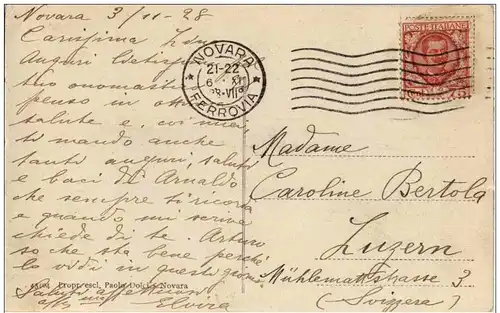 Novara 3/11-28
Carissima
Auguri
tuo onomastico
penso in ottima
salute e, coi miei
ti mando anche
tanti auguri, saluti
e baci di Arnaldo
che sempre ti ricorda
e quando mi scrive
chiede di te. Arturo
so che sta bene perché
lo vidi in questi giorni
Saluti affettuosi
Elvira
43204 Propr. escl. Paolo Dolci, Novara
NOVARA
21-22
FERROVIA
POSTE ITALIANE
Cent. 75
Madame
Caroline Bertola
Luzern
Mühlemattstrasse 3
(Svizzera)